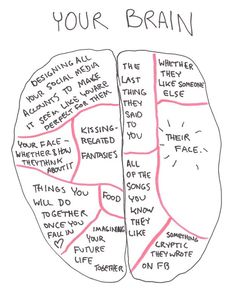 YOUR BRAIN
DESIGNING ALL
YOUR SOCIAL MEDIA
ACCOUNTS TO MAKE
IT SEEM LIKE YOU ARE
PERFECT FOR THEM
YOUR FACE -
WHETHER & HOW
THEY THINK
ABOUT IT
KISSING-
RELATED
FANTASIES
THINGS YOU
WILL DO
TOGETHER
ONCE YOU
FALL IN
♡
FOOD
IMAGINING
YOUR
FUTURE
LIFE
TOGETHER
THE
LAST
THING
THEY
SAID
TO
YOU
WHETHER
THEY
LIKE SOMEONE
ELSE
THEIR
FACE.
ALL
OF THE
SONGS
YOU
KNOW
THEY
LIKE
SOMETHING
CRYPTIC
THEY WROTE
ON FB